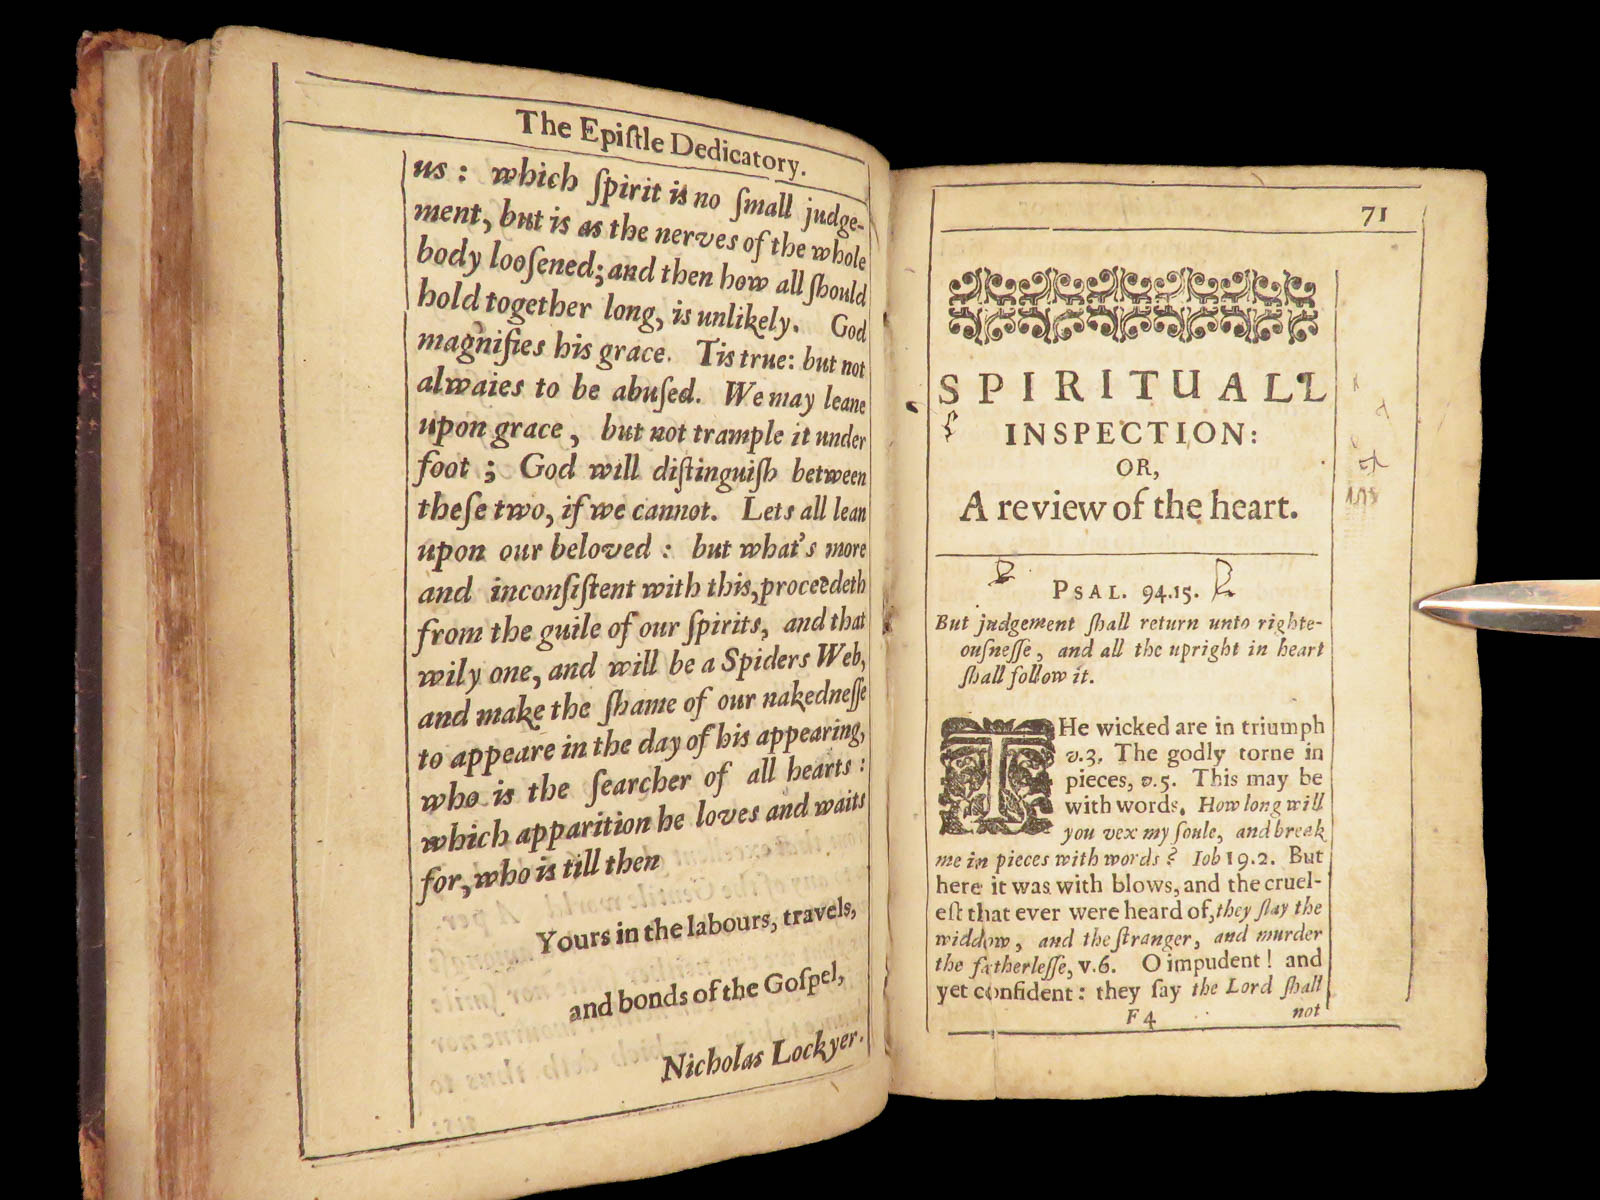 The Epiſtle Dedicatory.
us : which ſpirit is no ſmall judge-
ment, but is as the nerves of the whole
body looſened; and then how all ſhould
hold together long, is unlikely. God
magnifies his grace. Tis true: but not
alwaies to be abuſed. We may leane
upon grace, but not trample it under
foot ; God will diſtinguiſh between
theſe two, if we cannot. Lets all lean
upon our beloved : but what's more
and inconſiſtent with this, proceedeth
from the guile of our ſpirits, and that
wily one, and will be a Spiders Web,
and make the ſhame of our nakedneſſe
to appeare in the day of his appearing,
who is the ſearcher of all hearts :
which apparition he loves and waits
for, who is till then
Yours in the labours, travels,
and bonds of the Goſpel,
Nicholas Lockyer.
71
SPIRITUALL
INSPECTION:
OR,
A review of the heart.
PSAL. 94.15.
But judgement ſhall return unto righte-
ouſneſſe, and all the upright in heart
ſhall follow it.
THe wicked are in triumph
v.3. The godly torne in
pieces, v.5. This may be
with words. How long will
you vex my ſoule, and break
me in pieces with words ? Iob 19.2. But
here it was with blows, and the cruel-
eſt that ever were heard of, they ſlay the
widdow, and the ſtranger, and murder
the fatherleſſe, v.6. O impudent ! and
yet confident : they ſay the Lord ſhall
F 4 not